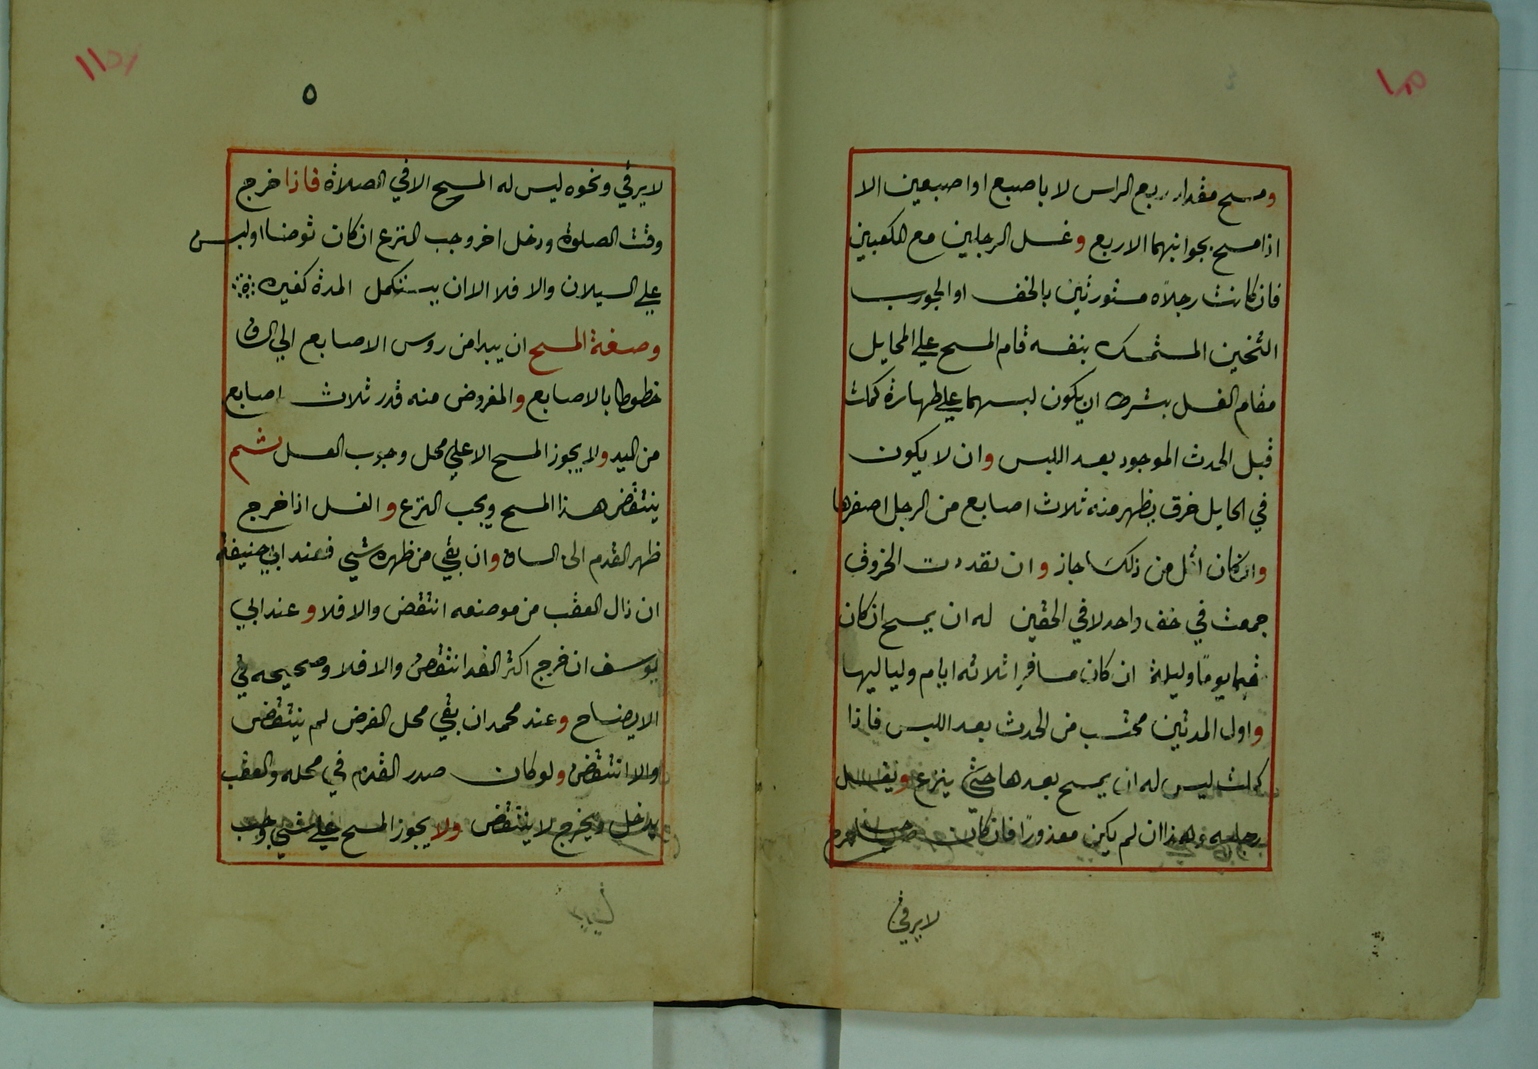 ومسح مقدار ربع الراس لا باصبع او اصبعين الا
اذا مسح بجوانبهما الاربع وغسل الرجلين مع الكعبين
فان كانت رجلاه مستورتين بالخف او الجورب
الثخين المستمسك بنفسه قام المسح علي الحايل
مقام الغسل بشرط ان يكون لبسهما علي طهارة كملت
قبل الحدث الموجود بعد اللبس وان لا يكون
في الحايل خرق يظهر منه ثلاث اصابع من الرجل اصغرها
وان كان اقل من ذلك جاز وان تعددت الخروق
جمعت في خف واحد لا في الخفين له ان يمسح ان كان
مقيما يوما وليلة ان كان مسافرا ثلاثه ايام ولياليها
واول المدتين محتسب من الحدث بعد اللبس فاذا
كملت ليس له ان يمسح بعدها حتي ينزع ويغسل
رجليه وهذا ان لم يكن معذورا فان كان
لا يرقي
٥
لا يرقي ونحوه ليس له المسح الا في الصلاة فاذا خرج
وقت الصلوة ودخل اخر وجب النزع ان كان توضا اولبس
علي السيلان والا فلا الا ان يستكمل المدة كغيره
وصفة المسح ان يبدا من روس الاصابع الي الساق
خطوطا بالاصابع والمفروض منه قدر ثلاث اصابع
من اليد ولا يجوز المسح الا علي محل وجوب الغسل ثم
ينتقض هذا المسح ويجب النزع والغسل اذا خرج
ظهر القدم الى الساق وان بقي من ظهره شي فعند ابي حنيفة
ان زال العقب من موضعه انتقض والا فلا وعند ابي
يوسف ان خرج اكثر القدم انتقض والا فلا وصححه في
الايضاح وعند محمد ان بقي محل الفرض لم ينتقض
والا انتقض ولو كان صدر القدم في محله والعقب
يدخل ويخرج لا ينتقض ولا يجوز المسح علي شي وجب